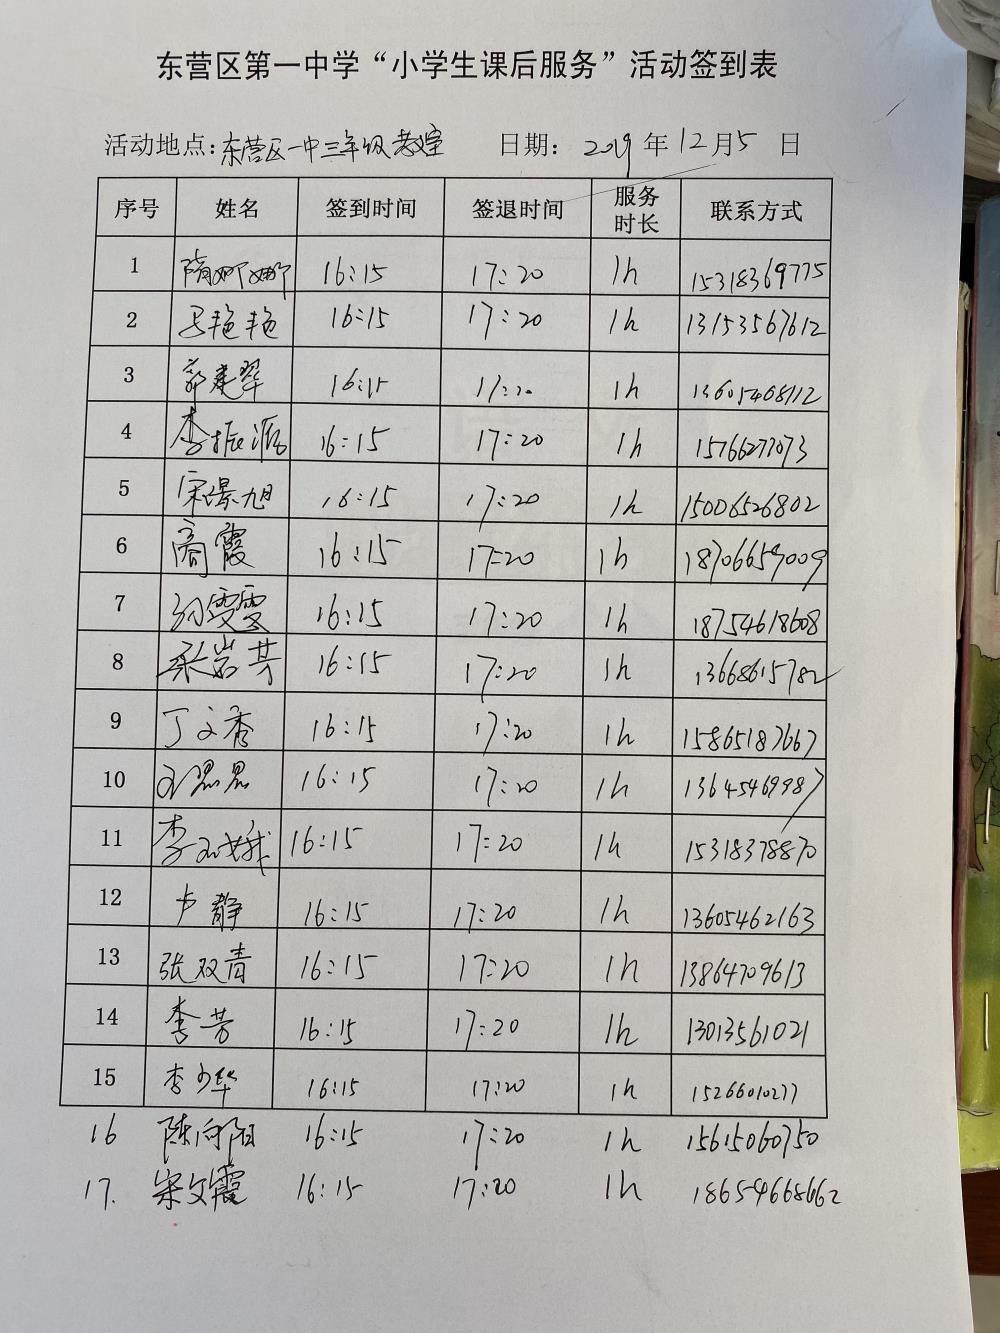 东营区第一中学“小学生课后服务”活动签到表
活动地点：东营区一中三年级教室 日期： 2019 年 12 月 5 日
序号 姓名 签到时间 签退时间 服务时长 联系方式
1 隋娜娜 16:15 17:20 1h 15318369775
2 马艳艳 16:15 17:20 1h 13153567612
3 郭建翠 16:15 17:20 1h 13605468112
4 李振源 16:15 17:20 1h 15766277073
5 宋景旭 16:15 17:20 1h 15006526802
6 商霞 16:15 17:20 1h 18706659009
7 雯雯 16:15 17:20 1h 18754618608
8 张岩芳 16:15 17:20 1h 13668615782
9 丁文秀 16:15 17:20 1h 15865187667
10 16:15 17:20 1h 13645469987
11 李玉娥 16:15 17:20 1h 15318378870
12 卢静 16:15 17:20 1h 13605462163
13 张双青 16:15 17:20 1h 13864709613
14 李芳 16:15 17:20 1h 13013561021
15 李少华 16:15 17:20 1h 15266010277
16 陈向阳 16:15 17:20 1h 15615060750
17. 宋文霞 16:15 17:20 1h 18654668662